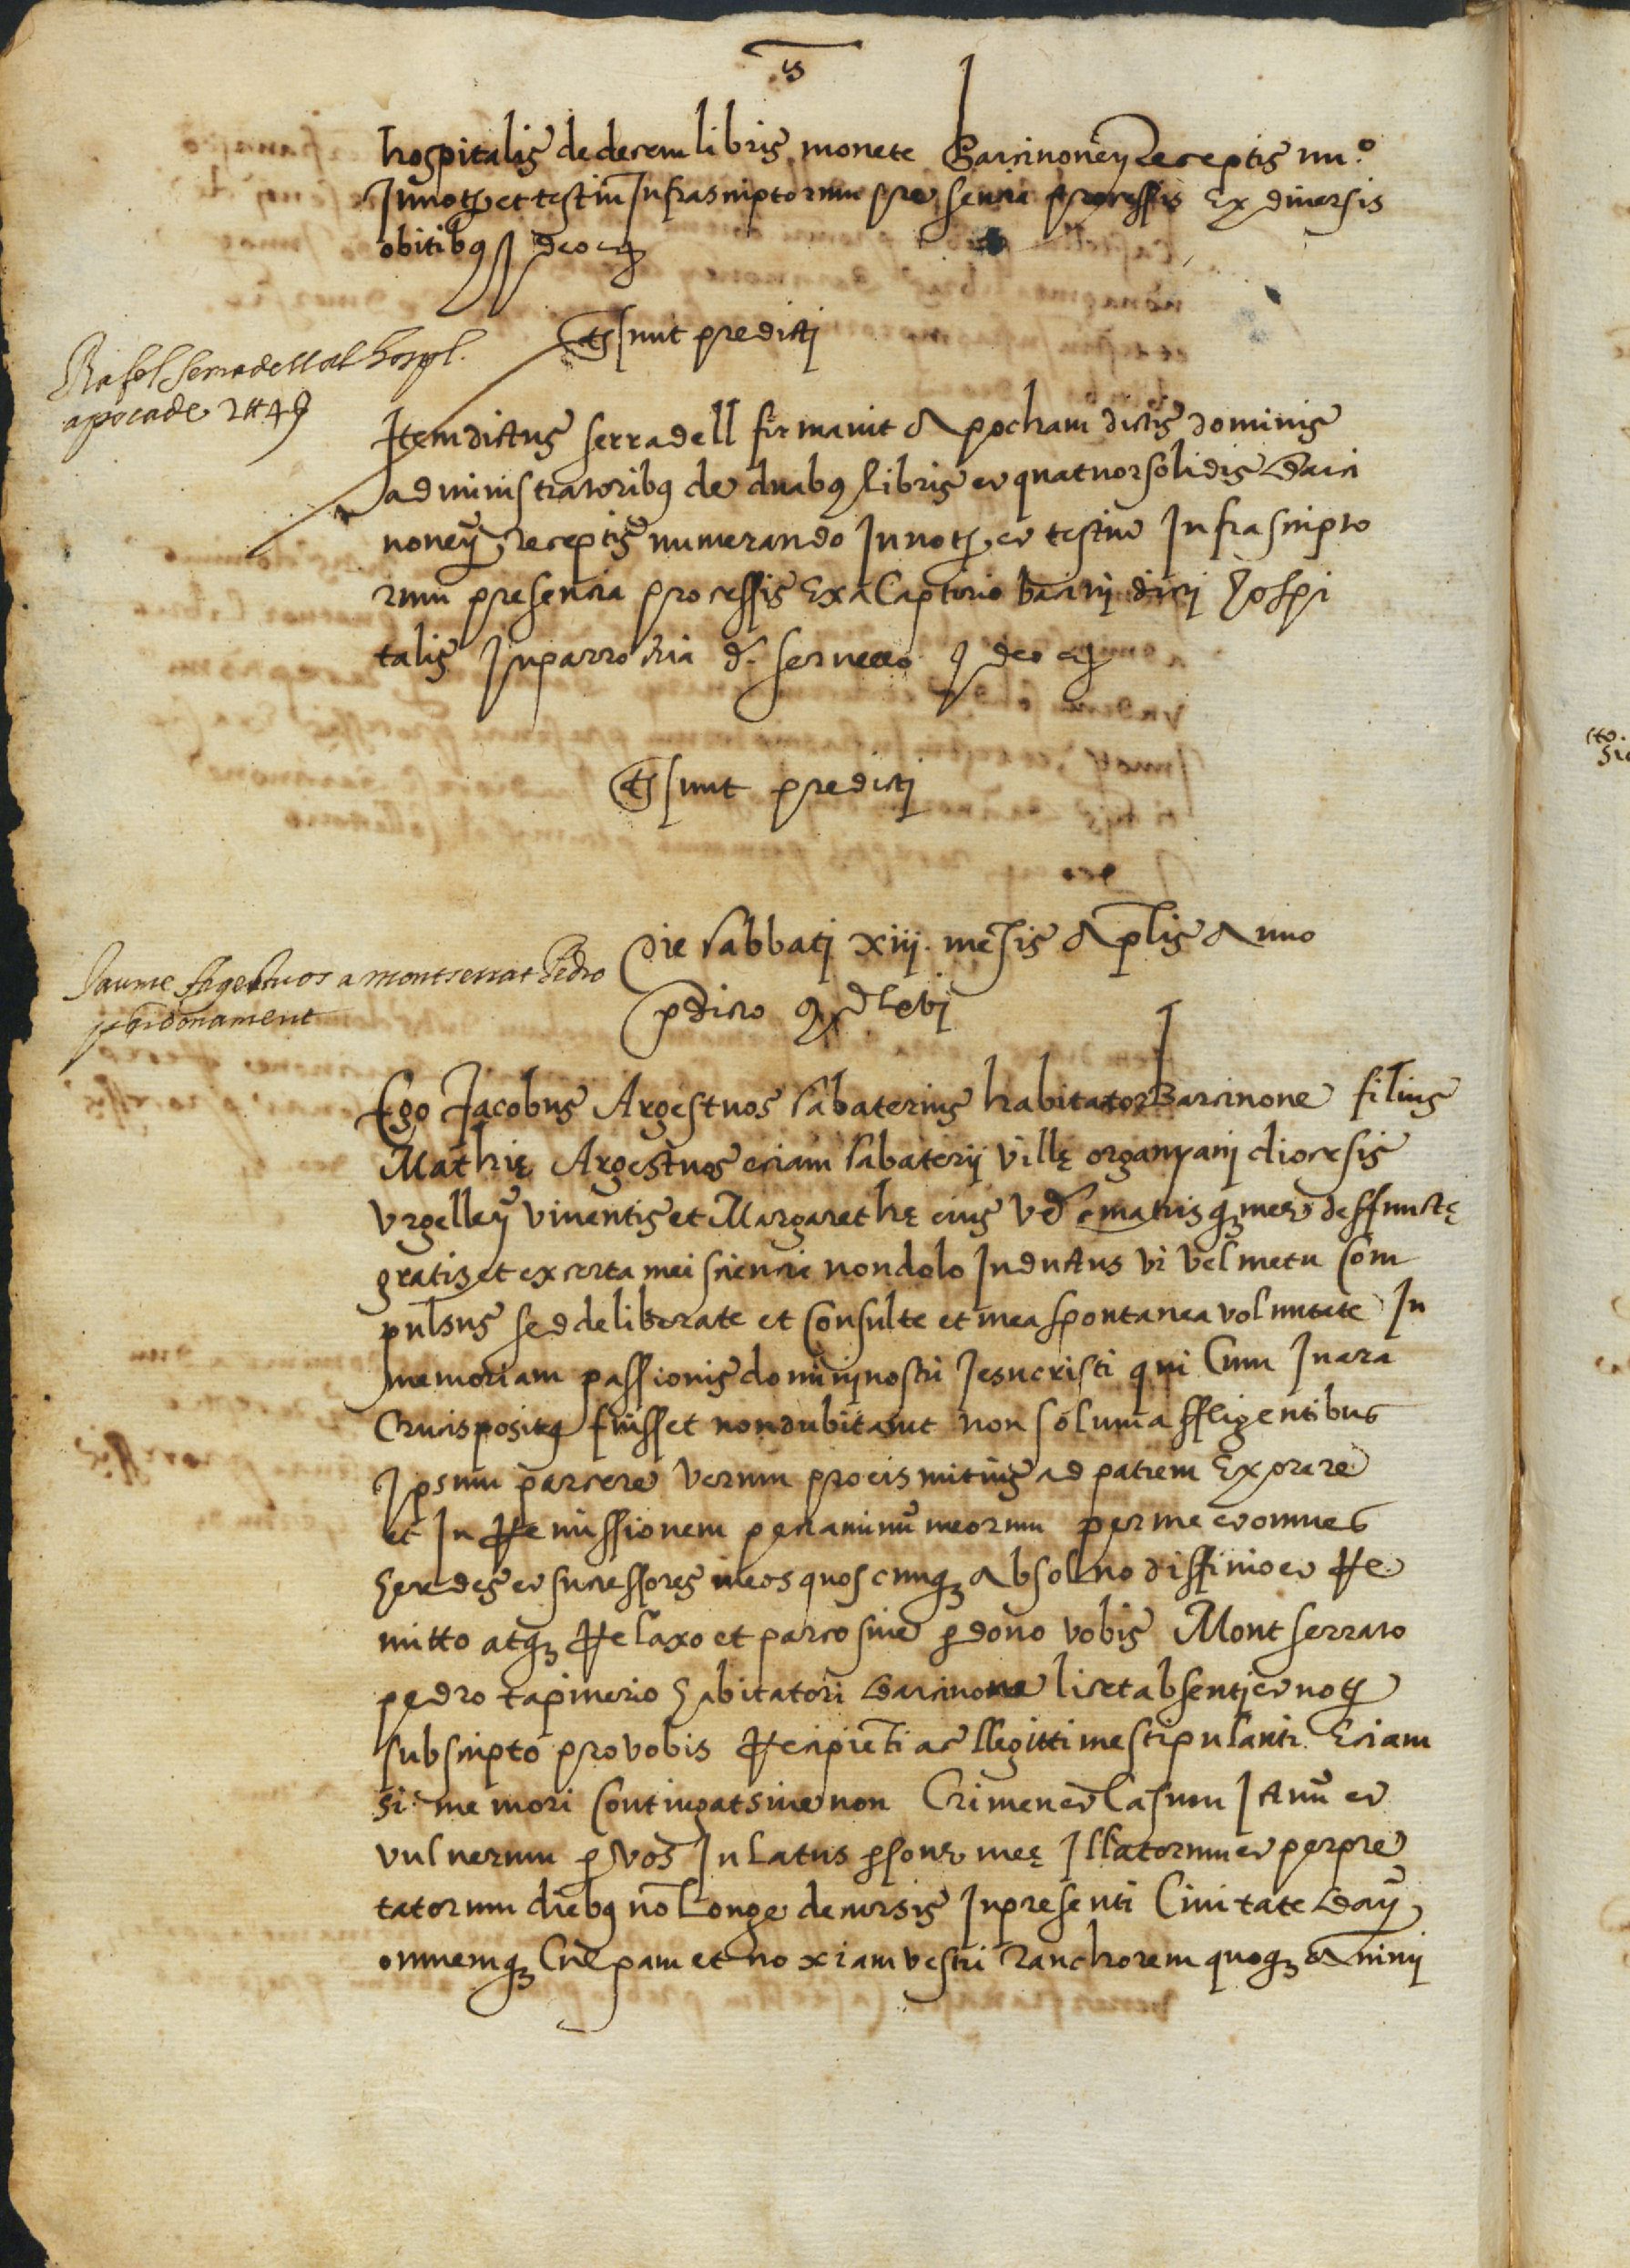 hospitalis de decem libris monete Barcinoneñ receptis nuº
In noty et testiũ Infrascriptorum presencia processis Ex diversis
obitibus deo etc
Ts sunt predicti
Rafel serradell al hospl.
apoca de 2 ll 4 s
Item dictus serradell firmavit Apocham dictis dominis
administratoribus de duabus libris et quatuor solidis Barci
noneñ receptis numerando In noty et testiũ Infrascripto
rum presencia processis Ex a Captirio bacinij dicti hospi
talis In parrochia de deo etc
Ts sunt predicti
Die sabbati xiij. mẽsis Aplis Anno
pdicto Dlvj
Jaume Argestuos a montserrat Pedro
perdonament
Ego Jacobus Argestuos sabaterius habitator Barcinone filius
Mathię Argestuos eciam sabaterij villę organyani diocesis
Urgelleñ viventis et Margarethę eius vx matrisqz mee deffunctę
gratis et ex certa mei sciencia non dolo Inductus vi vel metu Com
pulsus sed deliberate et Consulte et mea spontanea voluntate In
memoriam passionis dominj nostri Jesucristi qui Cum In ara
Crucis positus fuisset non dubitavit non solum affligentibus
Ipsum parcere verum pro eis mitius ad patrem Exorare
et In Remissionem peccaminũ meorum per me et omnes
heredes et successores meos quoscumqz Absolvo diffinio et Re
mitto atqz Relaxo et parco sive pdono vobis Montserrato
pedro tapinerio habitatori Barcinone licet absentj et noty
subscripto pro vobis Recipiẽti ac llegittime stipulanti Eciam
si me mori Contingat sive non Crimen et Casum Ictuũ et
vulnerum p vos In latus psone meę Illatorum et perpre
tatorum diebus nõ longe decursis In presenti Civitate Barñ
omnemqz Culpam et noxiam vestri Ranchorem quoqz Animj